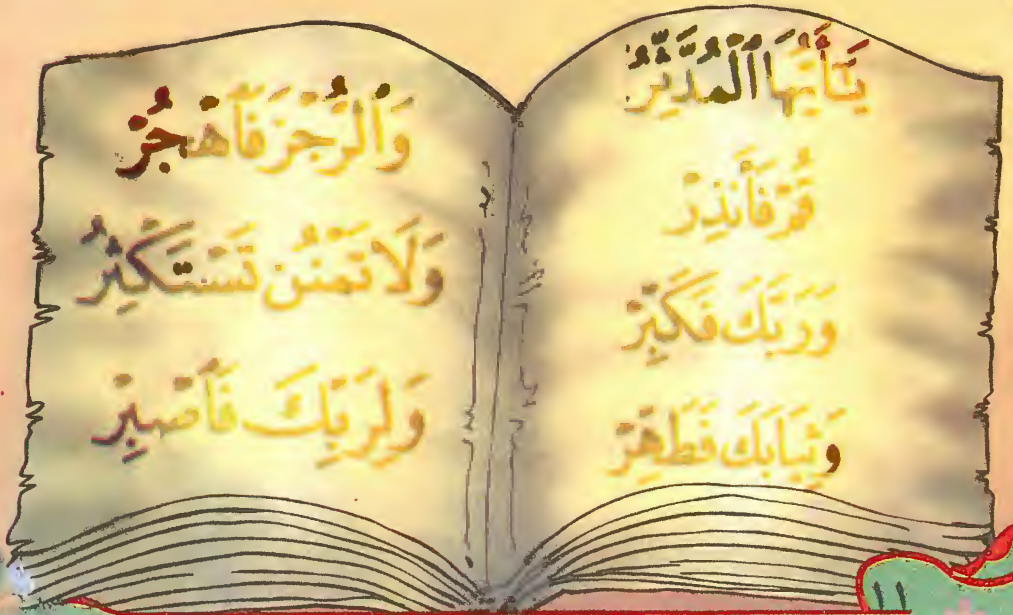 يَٰٓأَيُّهَا ٱلْمُدَّثِّرُ
قُمْ فَأَنذِرْ
وَرَبَّكَ فَكَبِّرْ
وَثِيَابَكَ فَطَهِّرْ
وَٱلرُّجْزَ فَٱهْجُرْ
وَلَا تَمْنُن تَسْتَكْثِرُ
وَلِرَبِّكَ فَٱصْبِرْ
١١